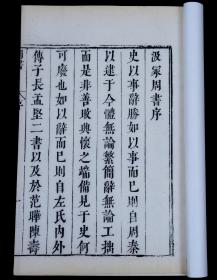 汲冢周書序
史以事辭勝如以事而已則自周秦
以逮于今體無論繁簡辭無論工拙
而是非善敗興懷之端備見于史何
可廢也如以辭而已則自左氏內外
傳子長孟堅二書以及於范曄陳壽